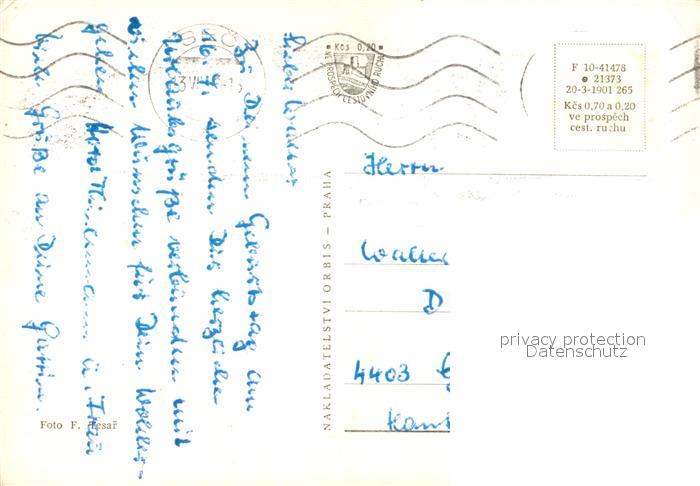 Lieber Walter
Zu Deinem Geburtstag am
senden Dir herzliche
Urlaubsgrüße verbunden mit
vielen Wünschen für Dein Wohler-
gehen Horst u. Frau
Viele Grüße an Deine Gattin.
Foto F. Tesař
NAKLADATELSTVÍ ORBIS – PRAHA
Kčs 0,20
VE PROSPĚCH CESTOVNÍHO RUCHU
F 10-41478
21373
20-3-1901 265
Kčs 0,70 a 0,20
ve prospěch
cest. ruchu
Herrn
Walter
D
4403
privacy protection
Datenschutz